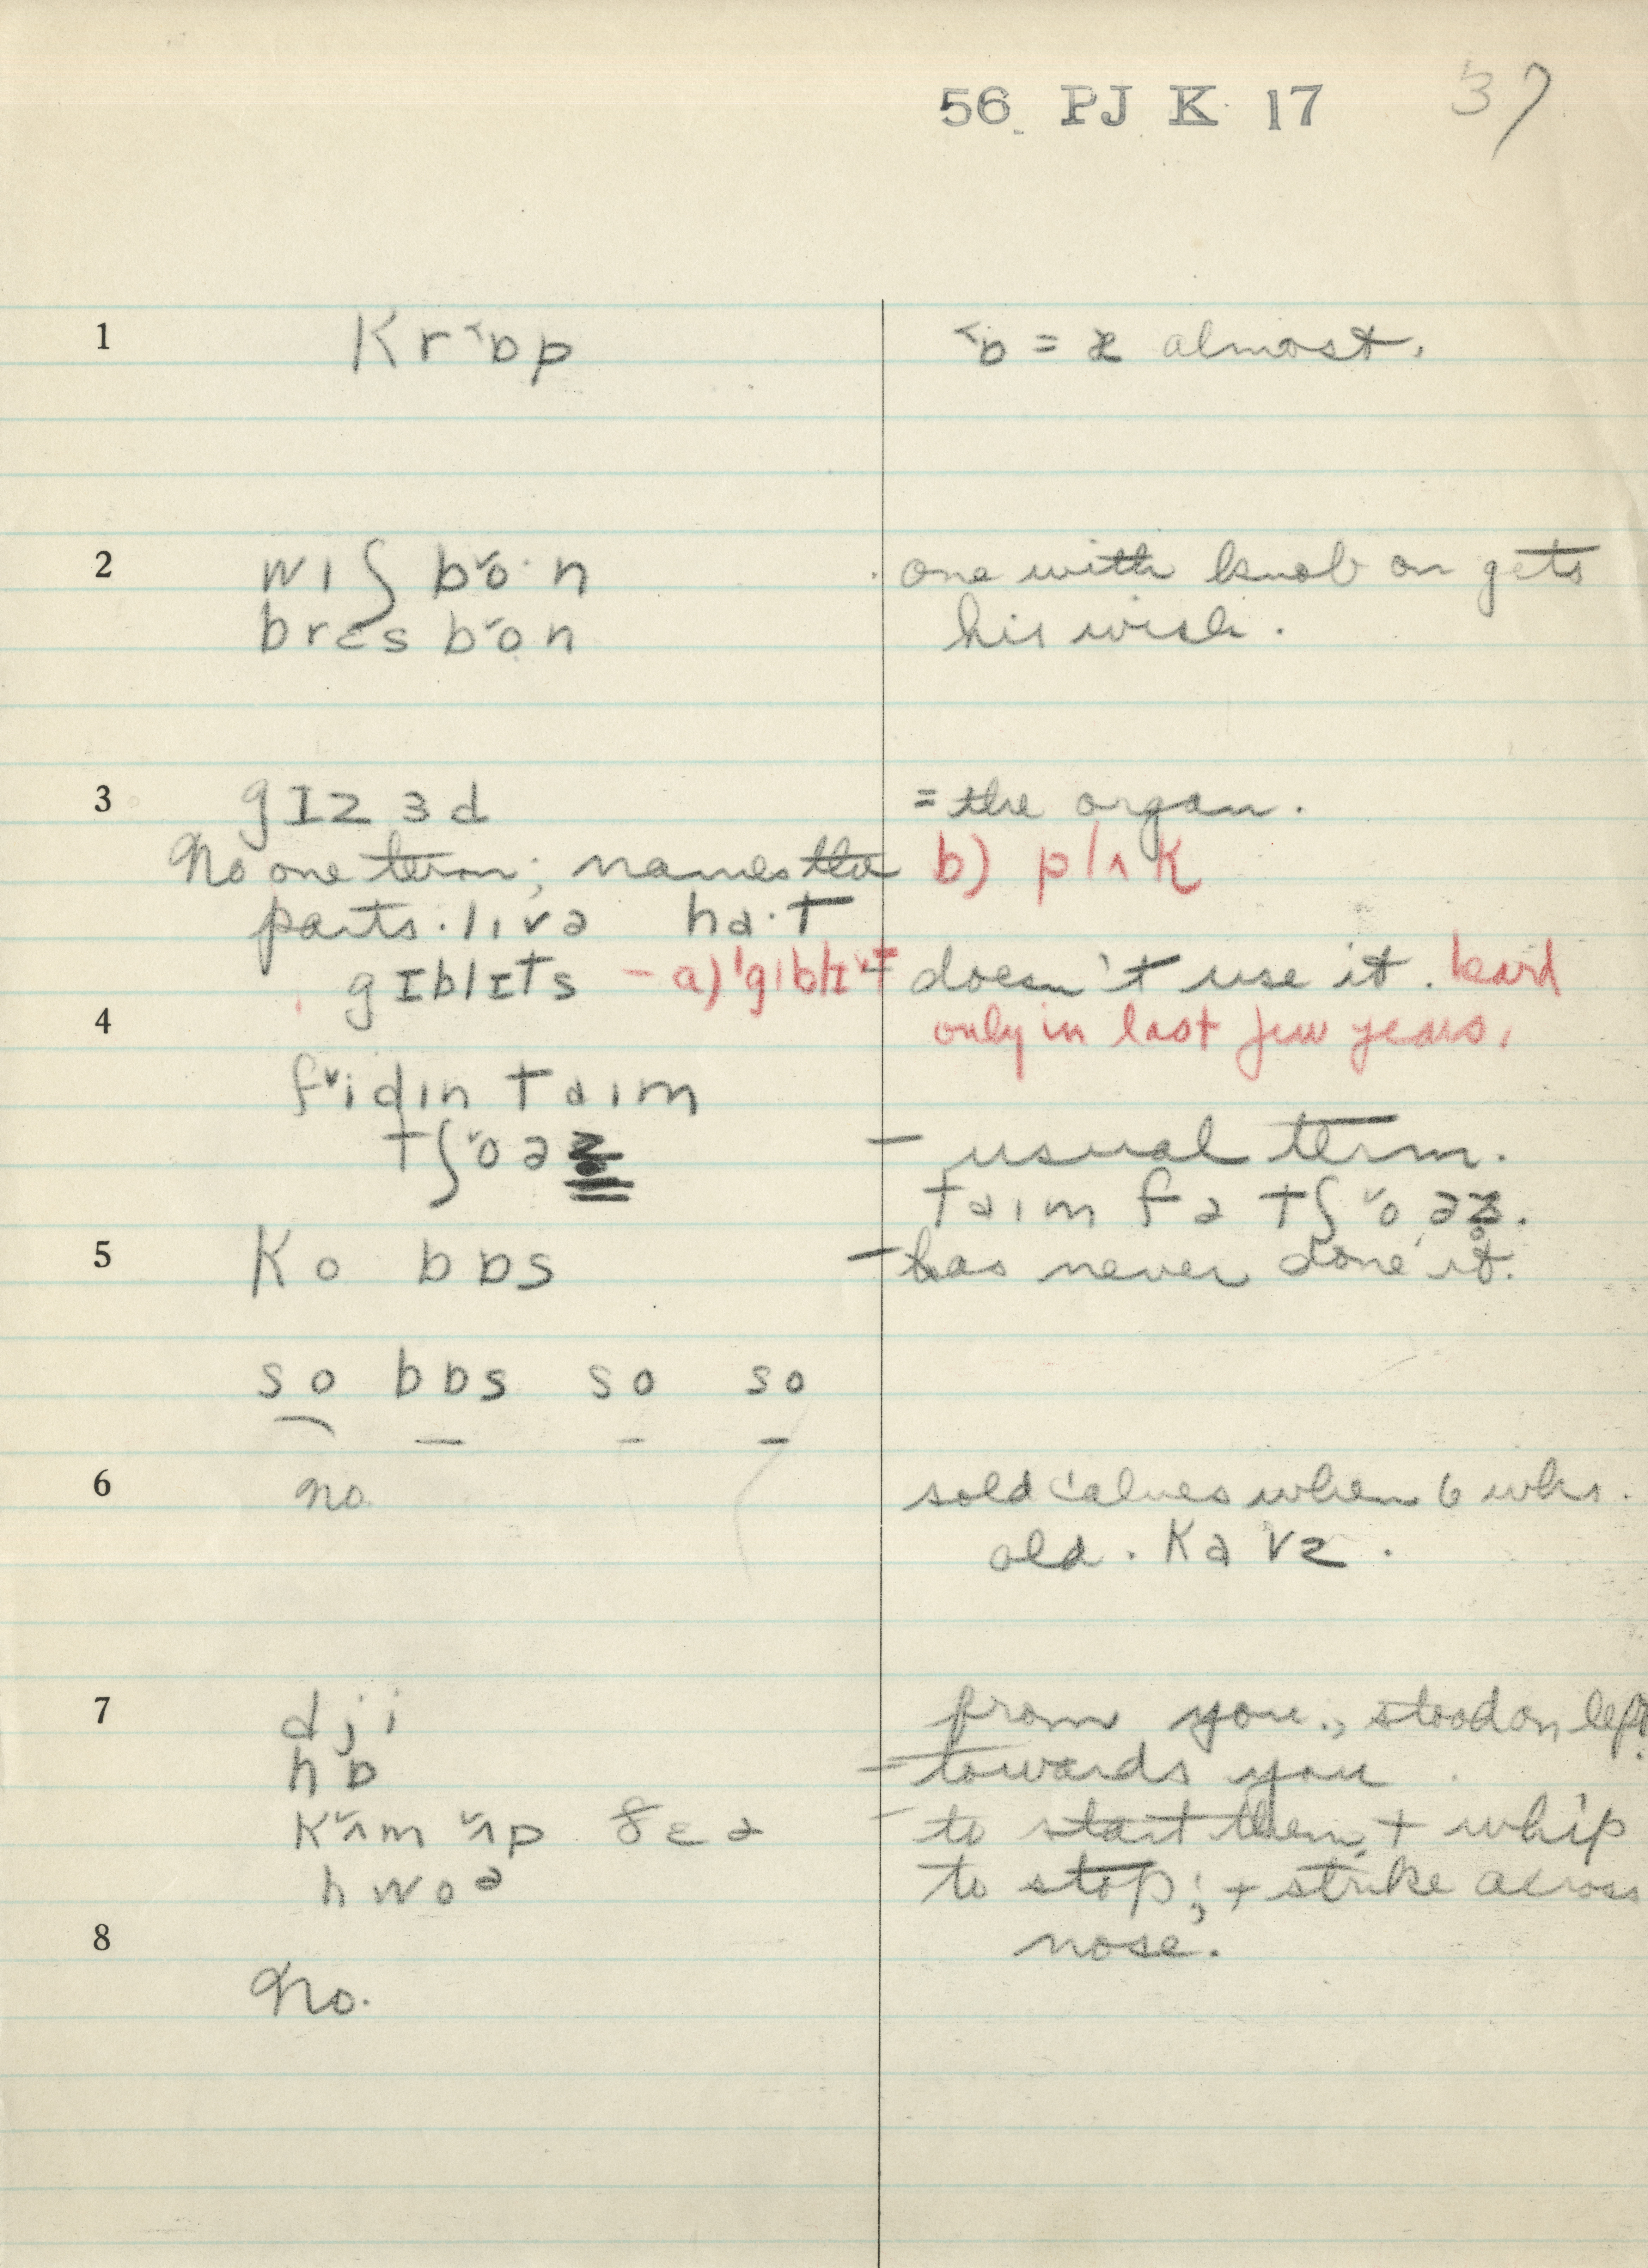 56 PJ K 17 37
1 Kr˂ɒp ˂ɒ = æ almost.
2 wɪʃ b˅o·n one with knob on gets
brɛs b˅on his wish.
3 gɪzɜd = the organ.
No one term; names the b) plʌk
parts. lɪvə ha·t
gɪblɪts – a) 'gɪblɪ˅t = doesn't use it. heard
4 only in last few years.
f˅idɪn taɪm
tʃ˅oəz – usual term.
taɪm fə tʃ˅oəz̥.
5 Ko bɒs – has never done it.
so bɒs so so
6 no. sold calves when 6 wks.
old. Kavz.
7 dji from you., stood on left.
hɒ – towards you
K˅ʌm ˅ʌp ðɛə – to start them + whip
hwoə to stop; + strike across
8 nose.
No.